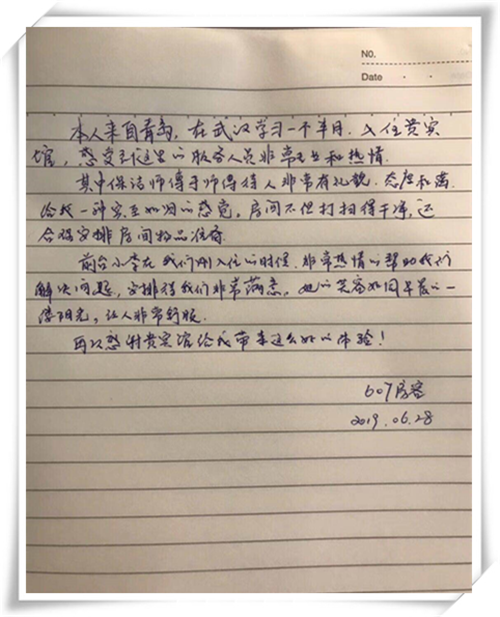 No.
Date
本人来自青岛，在武汉学习一个半月。入住贵宾
馆，感受到这里的服务人员非常专业和热情。
其中保洁师傅于师傅待人非常有礼貌，态度和蔼
给我一种宾至如归的感觉，房间不但打扫得干净，还
合理安排房间物品准备
前台小李在我们刚入住的时候，非常热情的帮助我们
解决问题，安排得我们非常满意，她的笑容如同早晨的一
缕阳光，让人非常舒服。
再次感谢贵宾馆给我带来这么好的体验！
607房客
2019.06.28